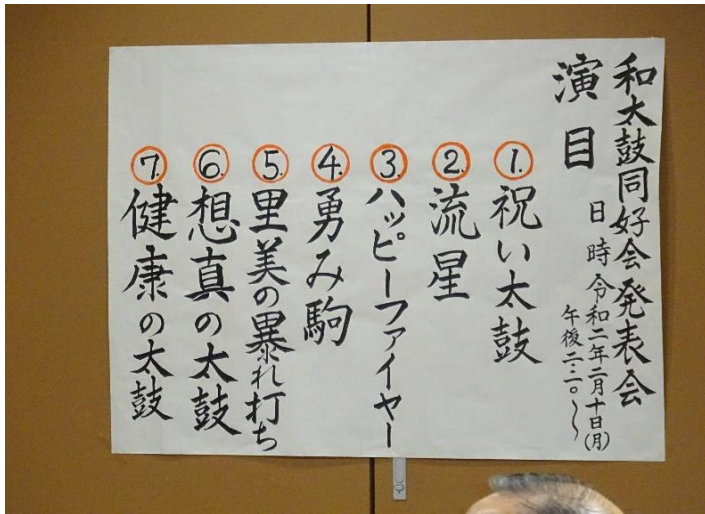 和太鼓同好会発表会
演目
日時 令和二年二月十日(月)
午後二・二〇〜
1. 祝い太鼓
2. 流星
3. ハッピーファイヤー
4. 勇み駒
5. 里美の暴れ打ち
6. 想真の太鼓
7. 健康の太鼓